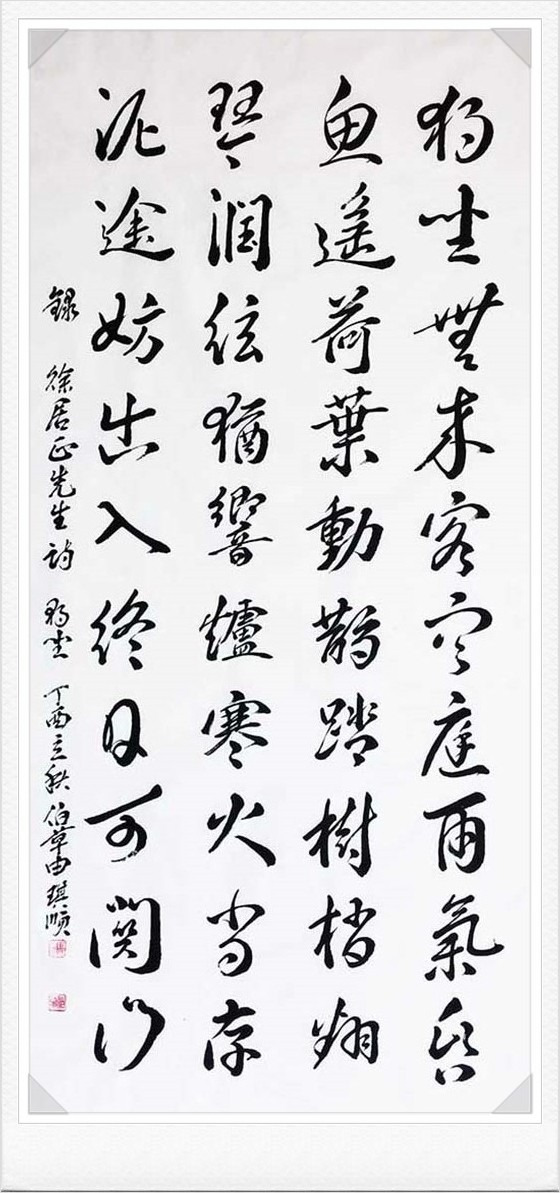 獨坐無來客空庭雨氣昏
魚遙荷葉動鵲踏樹梢翻
琴潤絃猶響爐寒火尚存
泥途妨出入終日可關門
錄 徐居正先生詩 獨坐 丁酉立秋 伯章由琪順